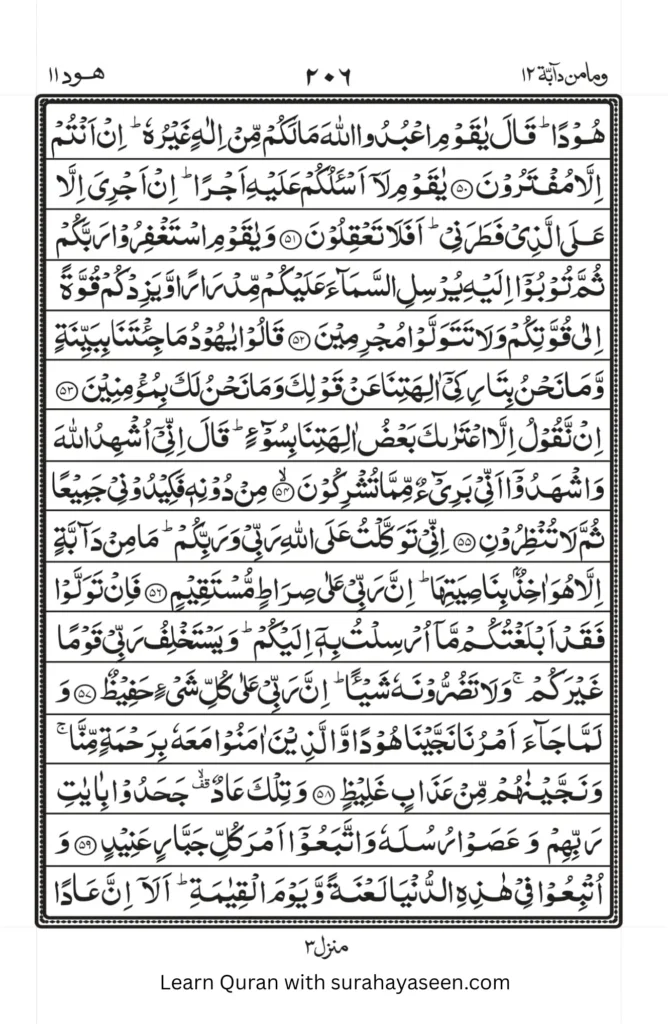 وما من دآبّة ١٢ ٢٠٦ هود ١١
هُوۡدًا ؕ قَالَ يٰقَوۡمِ اعۡبُدُوا اللّٰهَ مَا لَكُمۡ مِّنۡ اِلٰهٍ غَيۡرُهٗ ؕ اِنۡ اَنۡتُمۡ
اِلَّا مُفۡتَرُوۡنَ ﴿۵۰﴾ يٰقَوۡمِ لَاۤ اَسۡـَٔلُكُمۡ عَلَيۡهِ اَجۡرًا ؕ اِنۡ اَجۡرِىَ اِلَّا
عَلَى الَّذِىۡ فَطَرَنِىۡ ؕ اَفَلَا تَعۡقِلُوۡنَ ﴿۵۱﴾ وَيٰقَوۡمِ اسۡتَغۡفِرُوۡا رَبَّكُمۡ
ثُمَّ تُوۡبُوۡۤا اِلَيۡهِ يُرۡسِلِ السَّمَآءَ عَلَيۡكُمۡ مِّدۡرَارًا وَّيَزِدۡكُمۡ قُوَّةً
اِلٰى قُوَّتِكُمۡ وَلَا تَتَوَلَّوۡا مُجۡرِمِيۡنَ ﴿۵۲﴾ قَالُوۡا يٰهُوۡدُ مَا جِئۡتَنَا بِبَيِّنَةٍ
وَّمَا نَحۡنُ بِتَارِكِىۡۤ اٰلِهَتِنَا عَنۡ قَوۡلِكَ وَمَا نَحۡنُ لَكَ بِمُؤۡمِنِيۡنَ ﴿۵۳﴾
اِنۡ نَّقُوۡلُ اِلَّا اعۡتَرٰٮكَ بَعۡضُ اٰلِهَتِنَا بِسُوۡٓءٍ ؕ قَالَ اِنِّىۡۤ اُشۡهِدُ اللّٰهَ
وَاشۡهَدُوۡۤا اَنِّىۡ بَرِىۡٓءٌ مِّمَّا تُشۡرِكُوۡنَ ۙ‏﴿۵۴﴾ مِنۡ دُوۡنِهٖ فَكِيۡدُوۡنِىۡ جَمِيۡعًا
ثُمَّ لَا تُنۡظِرُوۡنِ ﴿۵۵﴾ اِنِّىۡ تَوَكَّلۡتُ عَلَى اللّٰهِ رَبِّىۡ وَرَبِّكُمۡ ؕ مَا مِنۡ دَآبَّةٍ
اِلَّا هُوَ اٰخِذٌۢ بِنَاصِيَتِهَا ؕ اِنَّ رَبِّىۡ عَلٰى صِرَاطٍ مُّسۡتَقِيۡمٍ ﴿۵۶﴾ فَاِنۡ تَوَلَّوۡا
فَقَدۡ اَبۡلَغۡتُكُمۡ مَّاۤ اُرۡسِلۡتُ بِهٖۤ اِلَيۡكُمۡ ؕ وَيَسۡتَخۡلِفُ رَبِّىۡ قَوۡمًا
غَيۡرَكُمۡ ۚ وَلَا تَضُرُّوۡنَهٗ شَيۡـًٔا ؕ اِنَّ رَبِّىۡ عَلٰى كُلِّ شَىۡءٍ حَفِيۡظٌ ﴿۵۷﴾ وَ
لَمَّا جَآءَ اَمۡرُنَا نَجَّيۡنَا هُوۡدًا وَّالَّذِيۡنَ اٰمَنُوۡا مَعَهٗ بِرَحۡمَةٍ مِّنَّا ۚ
وَنَجَّيۡنٰهُمۡ مِّنۡ عَذَابٍ غَلِيۡظٍ ﴿۵۸﴾ وَتِلۡكَ عَادٌ ۙقف جَحَدُوۡا بِاٰيٰتِ
رَبِّهِمۡ وَعَصَوۡا رُسُلَهٗ وَاتَّبَعُوۡۤا اَمۡرَ كُلِّ جَبَّارٍ عَنِيۡدٍ ﴿۵۹﴾ وَ
اُتۡبِعُوۡا فِىۡ هٰذِهِ الدُّنۡيَا لَعۡنَةً وَّيَوۡمَ الۡقِيٰمَةِ ؕ اَلَاۤ اِنَّ عَادًا
منزل ٣
Learn Quran with surahayaseen.com